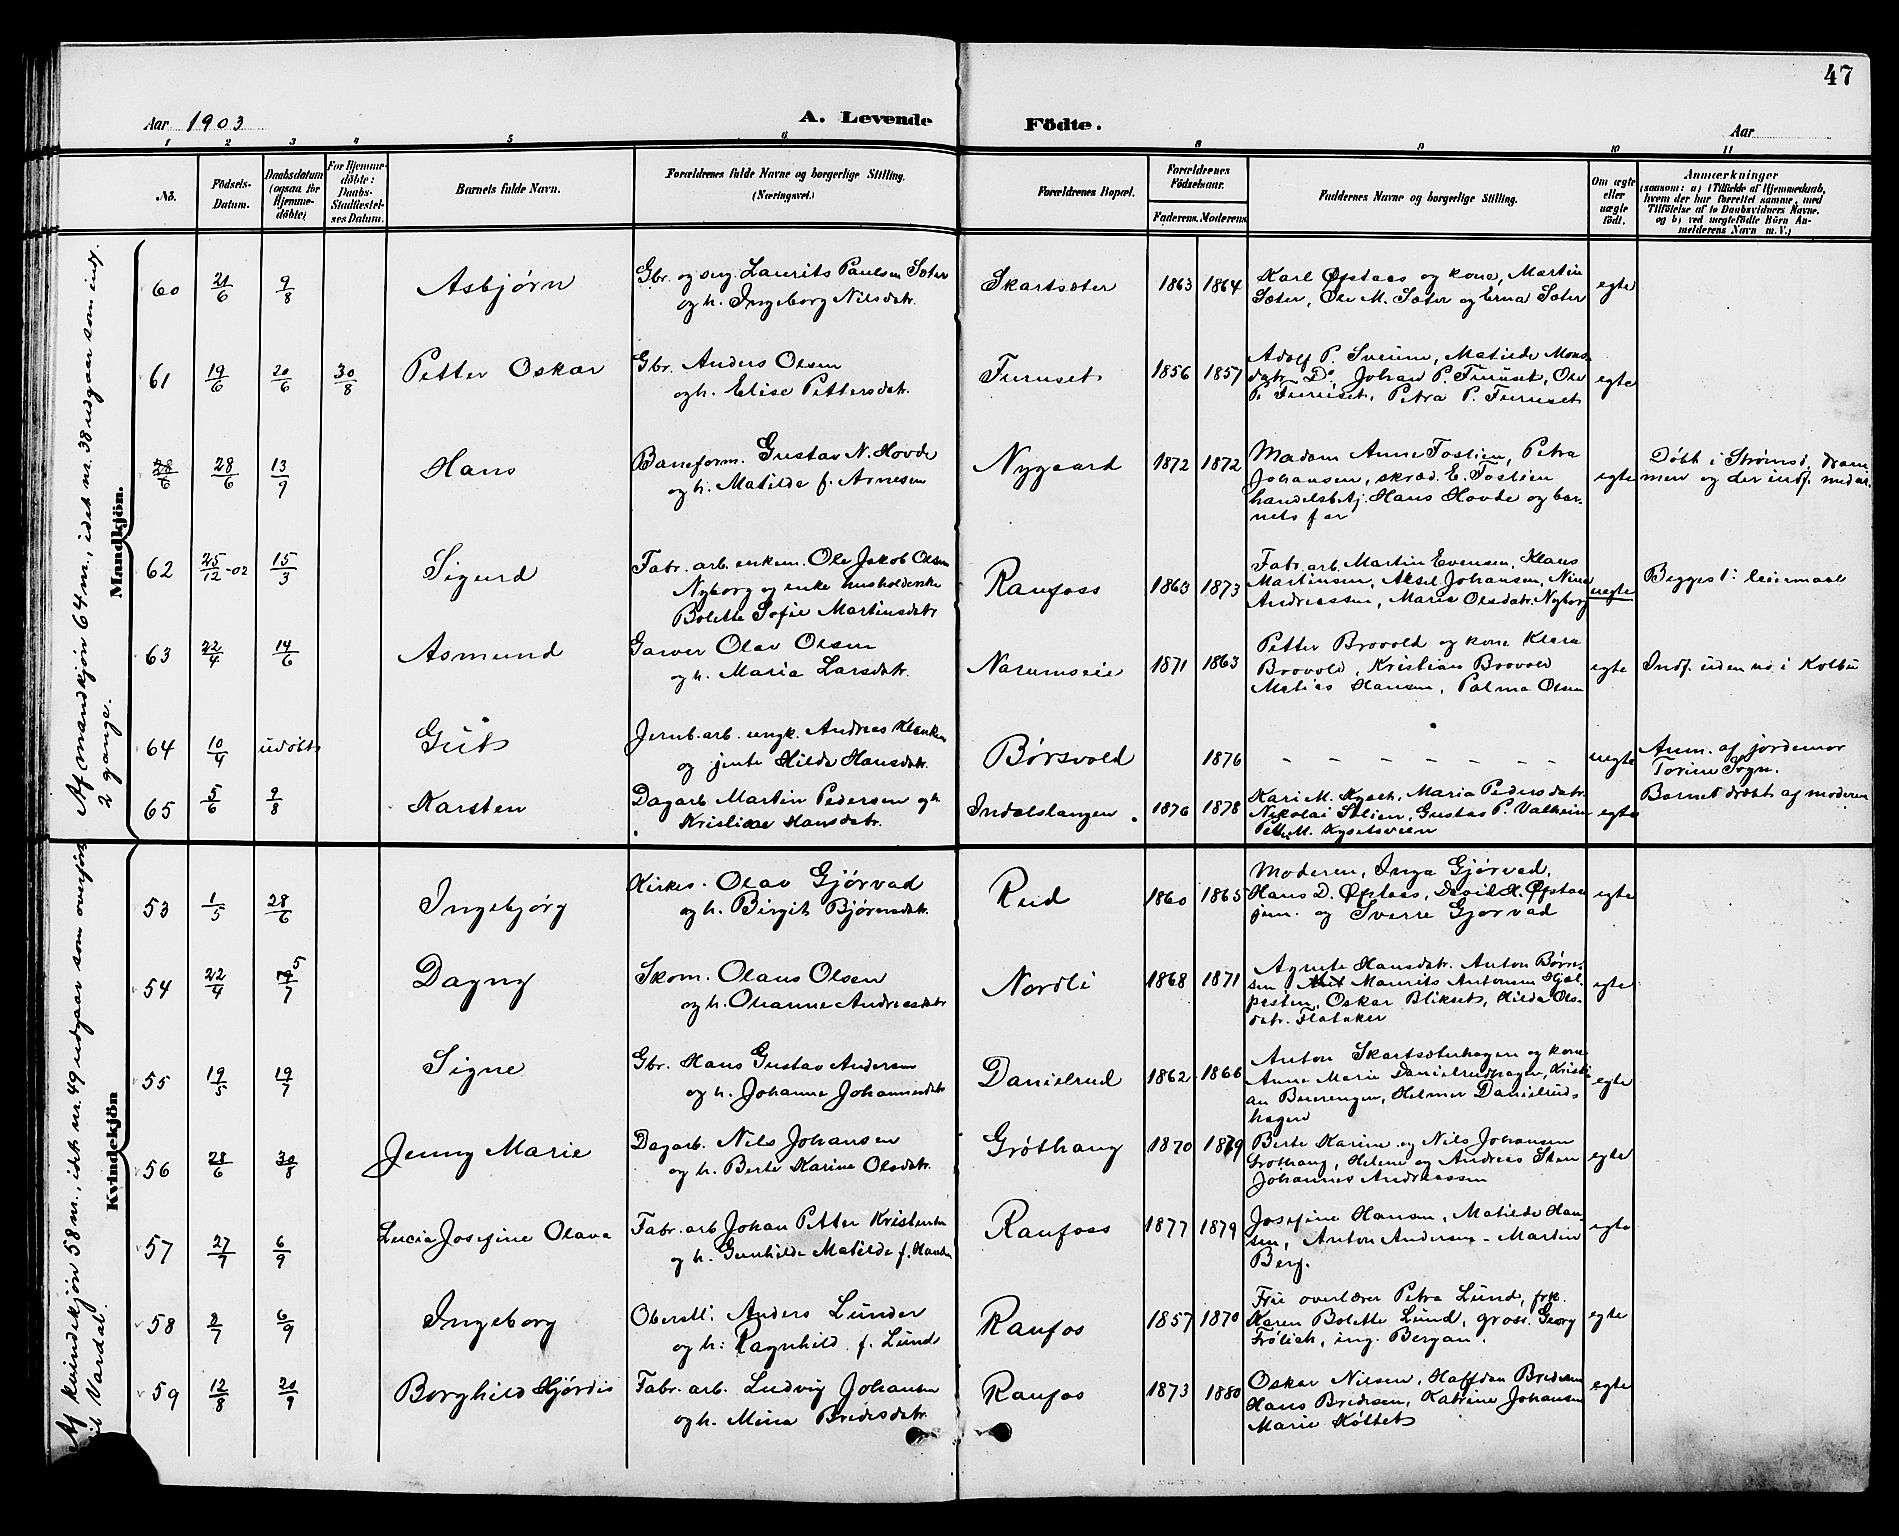 47
Aar 1903
A. Levende
Födte.
Aar
1 2 3 4 5 6 8 9 10 11
No.
Födsels-
Datum.
Daabsdatum
(ogsaa for
Hjemme-
døbte)
For Hjemme-
døbte:
Daabs-
Stadfæstel-
ses Datum.
Barnets fulde Navn.
Forældrenes fulde Navne og borgerlige Stilling.
(Næringsvei.)
Forældrenes Bopæl.
Forældrenes
Fødselsaar.
Faderens. Moderens.
Faddernes Navne og borgerlige Stilling.
Om ægte
eller
uægte
født.
Anmærkninger
(saasom: a) i Tilfælde af Hjemmedaab,
hvem der har forrettet samme, med
Tilføielse af to Daabsvidners Navne.
og b) ved uægtefødte Børn An-
melderens Navn m. V.)
Af mandkjøn 64 nr., idet nr. 38 udgaar som indf.
2 gange.
Mandkjön.
60 21/6 9/8 Asbjørn
Gbr. og seg. Laurits Paulsen Sæter
og h. Ingeborg Nilsdatr.
Skartsæter 1863 1864
Karl Øfstaas og kone, Martin
Sæter, Ole M. Sæter og Erna Sæter
egte
61 19/6 20/6 30/8 Petter Oskar
Gbr. Anders Olsen
og h. Elise Pettersdatr.
Furuset 1856 1857
Adolf P. Sveum, Matilde Mons
datr. Do, Johan P. Furuset, Ole
P. Furuset, Petra P. Furuset
egte
28/6 28/6 13/9 Hans
Baneform. Gustav N. Hovde
og h. Matilde f. Arnesen
Nygaard 1872 1872
Madam Anne Foslien, Petra
Johansen, skræd. E. Foslien
handelsbetj. Hans Hovde og bar-
nets far
egte
Døbt i Strømsø, Dram
men og der indf. med nr.
62 25/12-02 15/3 Sigurd
Fabr. arb. enkem. Ole Jakob Olsen
Nyborg og enke husholderske
Bolette Sofie Martinsdatr
Raufoss 1863 1873
Fabr. arb. Martin Evensen, Klaus
Martinsen, Aksel Johansen, Nina
Andreassen, Marie Olsdatr. Nyborg
uegte
Begges 1ste leiermaal
63 22/4 14/6 Asmund
Garver Olav Olsen
og h. Maria Larsdatr.
Narumseie 1871 1863
Petter Brovold og kone Klara
Brovold, Kristian Brovold
Matias Hansen, Palma Olsen
egte
Indf. uden no i Kolbu
64 10/4 udøbt Gut
Jernb. arb. ungk. Andreas
og jente Hilda Hansdatr.
Børsvold 1876
– – – – – – –
uegte
Anm. af jordemor
Torine Sogn.
Barnet dræbt af moderen
65 5/6 9/8 Karsten
Dagarb Martin Pedersen og h.
Kristiane Hansdatr.
Indalslangen 1876 1878
Kari M. Kyset, Maria Pedersdatr.
Nikolai Stlien, Gustav P. Valheim
Petter M. Kysetsveen
egte
Af kvindekjøn 58 nr., idet nr. 49 udgaar som overført
til Vardal.
Kvindekjön
53 1/5 28/6 Ingebjørg
Kirkes. Olav Gjørvad
og h. Birgit Bjørnsdatr.
Reid 1860 1865
Moderen, Inga Gjørvad,
Hans D. Øfstaas, David H. Øfstaas
jun. og Sverre Gjørvad
egte
54 22/4 19 5/7 Dagny
Skom. Olaus Olsen
og h. Ohanne Andreasdatr
Nordli 1868 1871
Agnete Hansdatr. Anton Børre-
sen, Maurits Antonsen Hjel-
pesten, Oskar Blikset, Hilda Ols-
datr. Flataker
egte
55 19/5 19/7 Signe
Gbr. Hans Gustav Andersen
og h. Johanne Johannesdatr
Danielrud 1862 1866
Anton Skartsæterhagen og kone
Anne Marie Danielrudhagen, Kristi-
an Berrengen, Helmer Danielrud-
hagen
egte
56 28/6 30/8 Jenny Marie
Dagarb. Nils Johansen
og h. Berte Karine Olsdatr.
Grøthaug 1870 1879
Berte Karine og Nils Johansen
Grøthaug, Helene og Andreas Sten
Johannes Andreassen
egte
57 27/7 6/9 Lucia Josefine Olava
Fabr. arb Johan Petter Kristensen
og h. Gunhilde Matilde f. Hansen
Raufoss 1877 1879
Josefine Hansen, Matilde Han
sen, Anton Andersen – Martin
Berg.
egte
58 2/7 6/9 Ingeborg
Oberstl: Anders Lunder
og h: Ragnhild f. Lund
Raufos 1857 1870
Fru overlærer Petra Lund, frk.
Karen Bolette Lund, gross. Georg
Frølich, ing. Bergan.
egte
59 12/8 20/9 Borghild Hjørdis
Fabr. arb. Ludvig Johansen
og h. Mina Bredesdatr.
Raufos 1873 1880
Oskar Nilsen, Halfdan Bredesen
Hans Bredesen, Katrine Johansen
Marie Køltet
egte